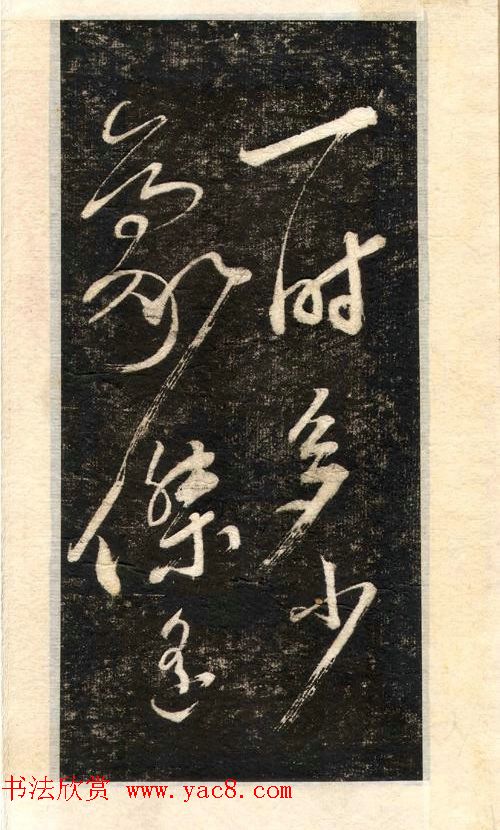 一时多少
豪傑遥
书法欣赏 www.yac8.com